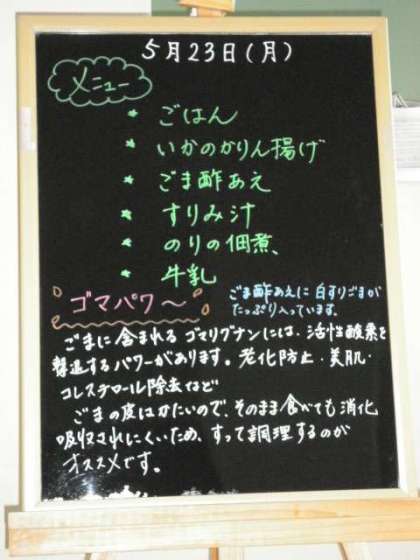 5月23日(月)
メニュー
* ごはん
* いかのかりん揚げ
* ごま酢あえ
* すりみ汁
* のりの佃煮
* 牛乳
ゴマパワ〜
ごま酢あえに白すりごまが
たっぷり入っています。
ごまに含まれるゴマリグナンには、活性酸素を
撃退するパワーがあります。老化防止・美肌・
コレステロール除去など
ごまの皮はかたいので、そのまま食べても消化
吸収されにくいため、すって調理するのが
オススメです。